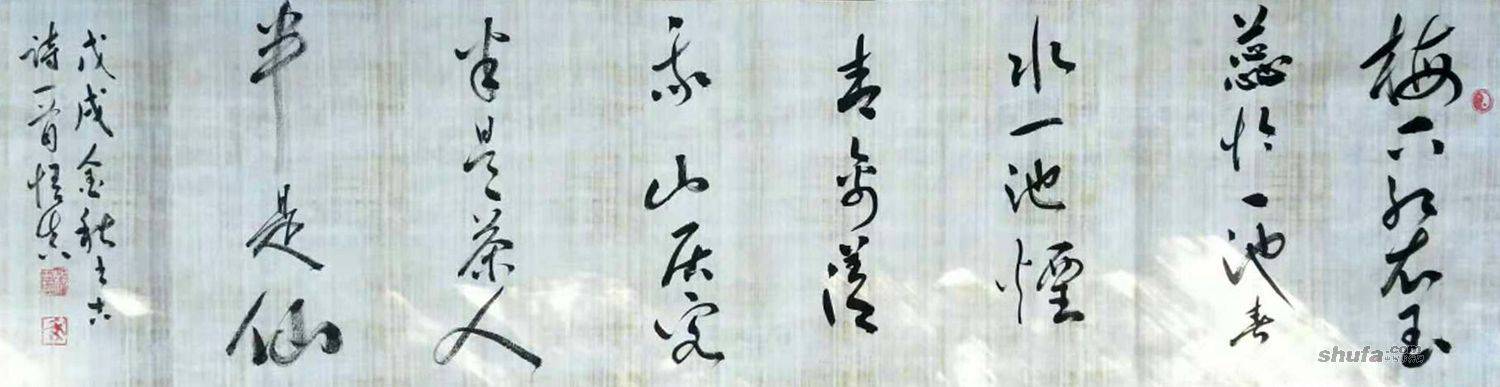 梅下红衣玉
蕊怜一池春
水一池煙
青從
我山居
半是茶人
半是仙
戊戌金秋
詩一首悟真
shufa.com